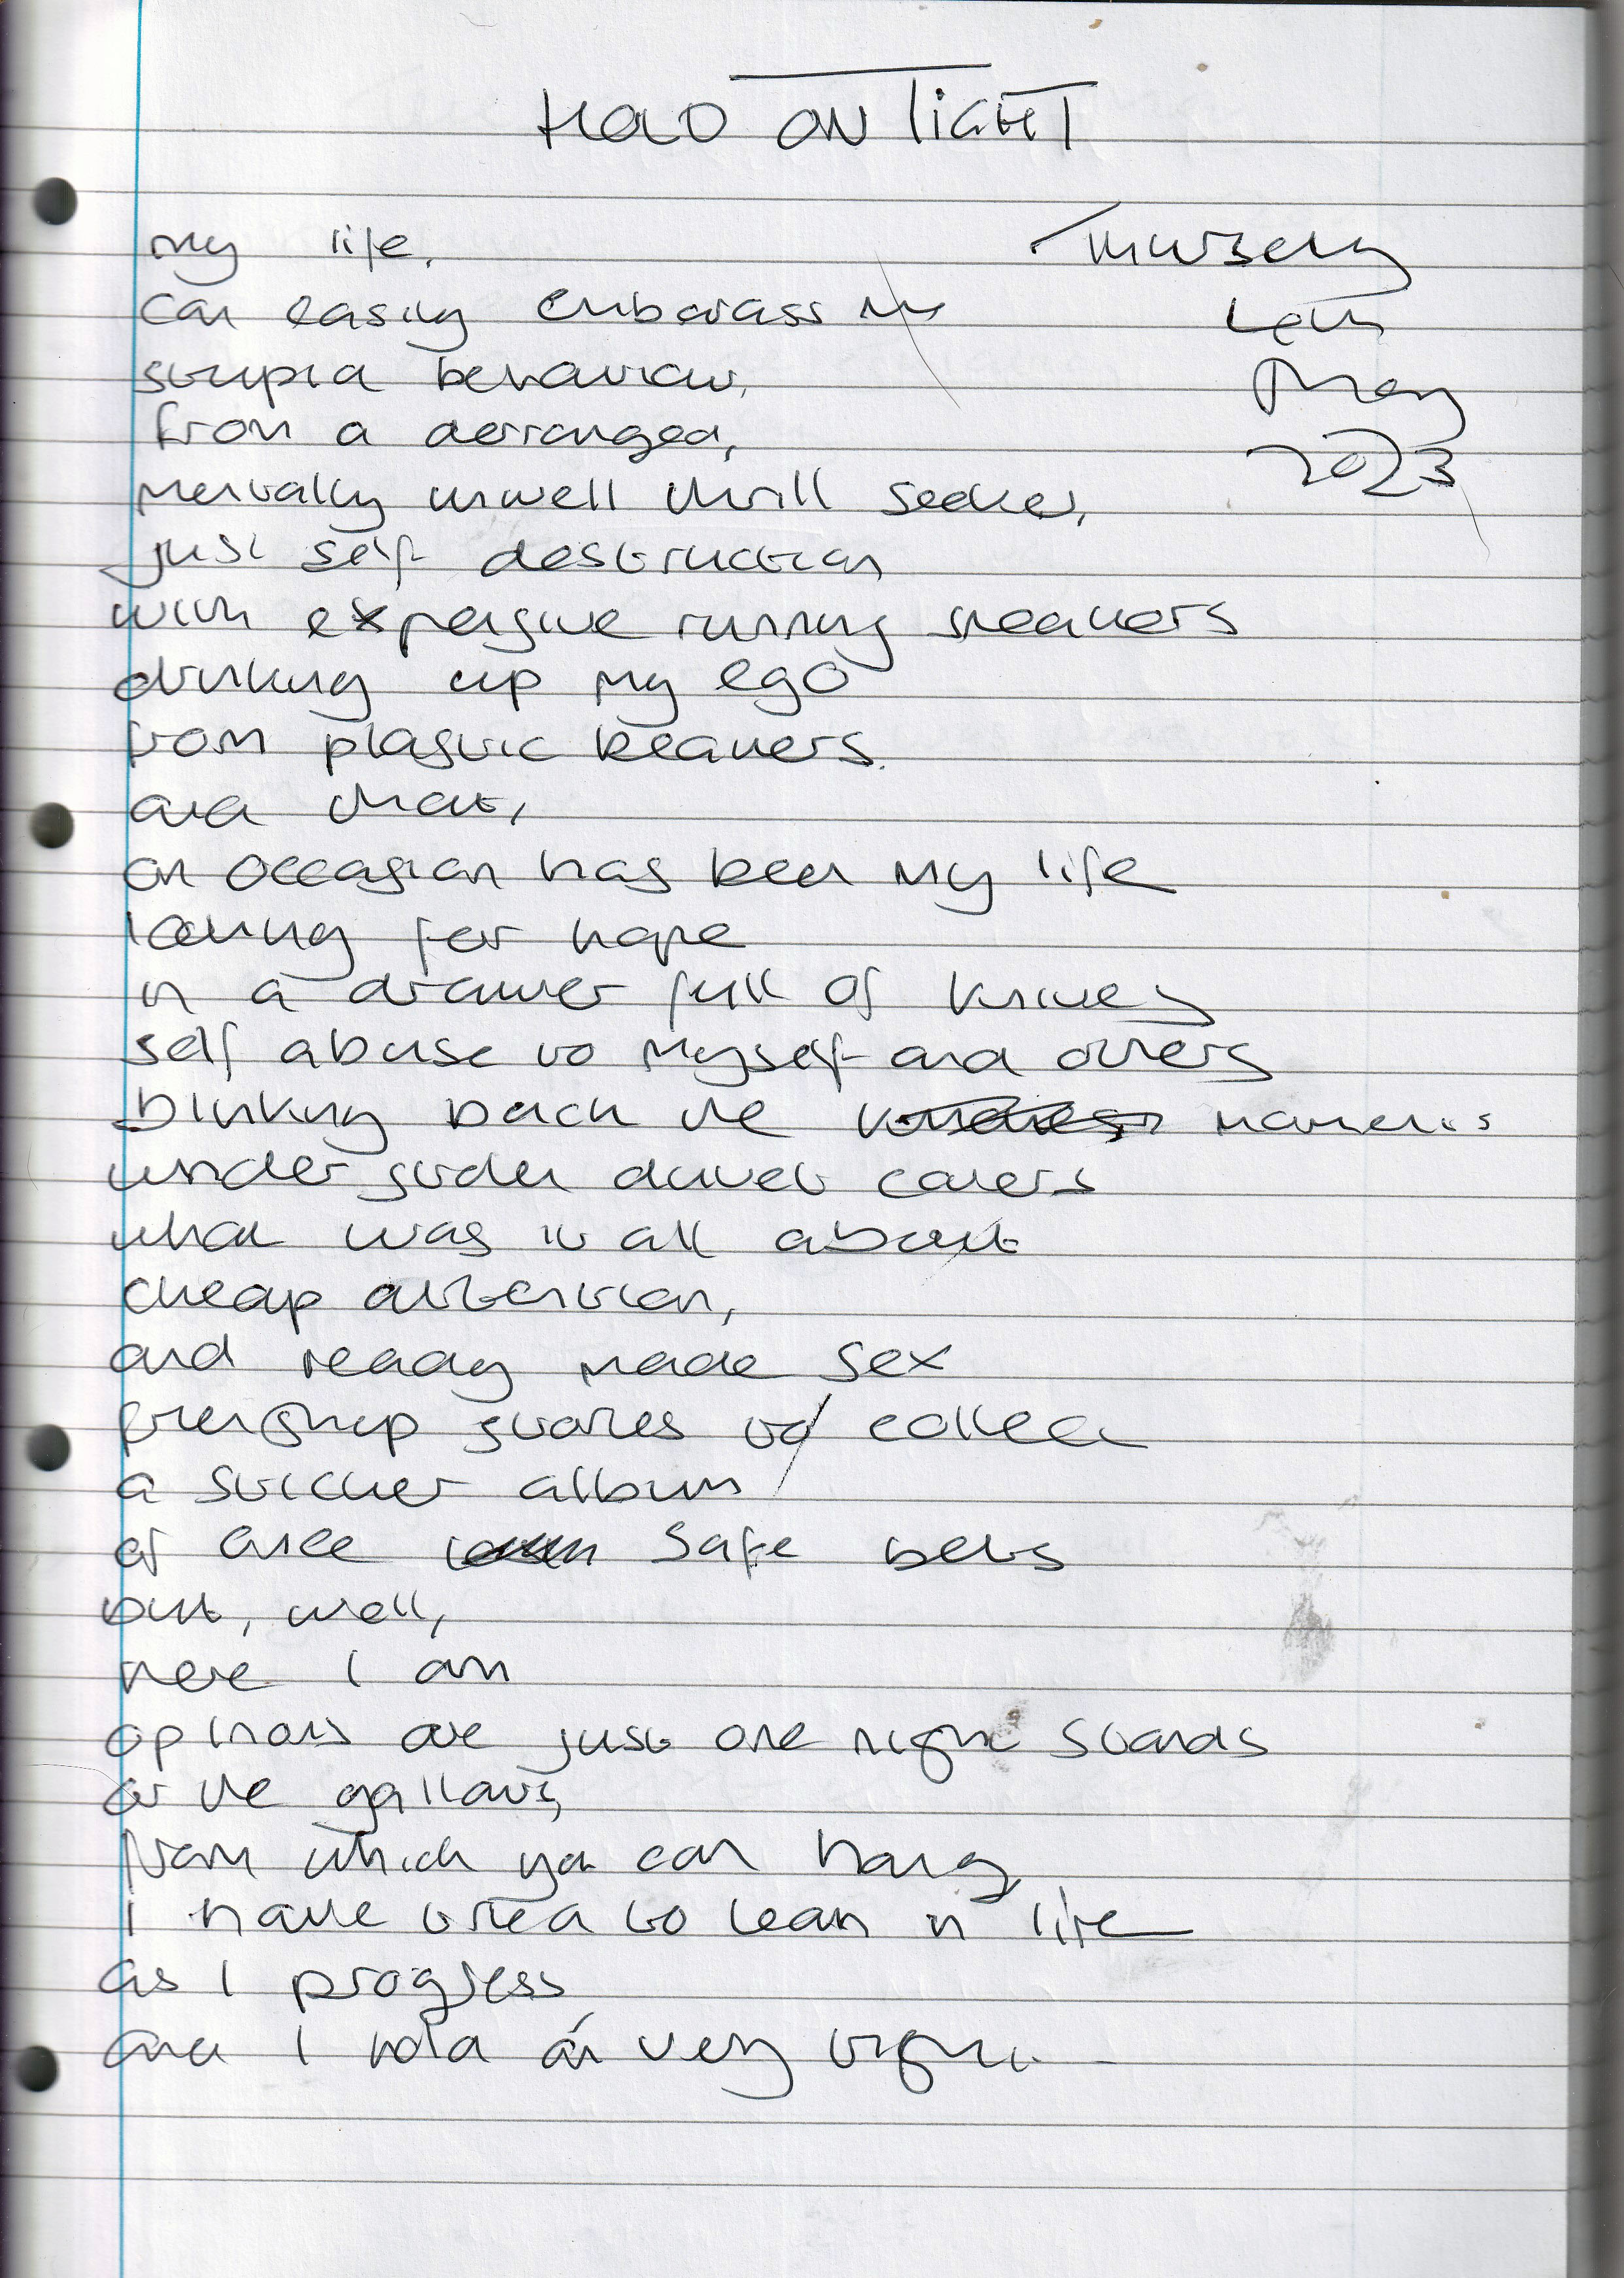 HOLD ON TIGHT
Thursday
my life,
can easily embarass me
May
stupid behaviour,
2023
from a derranged,
mentally unwell thrill seeker,
just self destruction
with expensive running sneakers
drinking up my ego
from plastic beakers.
and that,
on occasion has been my life
looking for hope
in a drawer full of knives
self abuse to myself and others
blinking back the moments
under stolen duvet covers
what was it all about
cheap attention,
and ready made sex
friendship stories to collect
a sticker album
of once safe bets
but, well,
here I am
opinions are just one night stands
or the gallows,
from which you can hang
I have tried to lean in life
as I progress
and I hold on very tight.